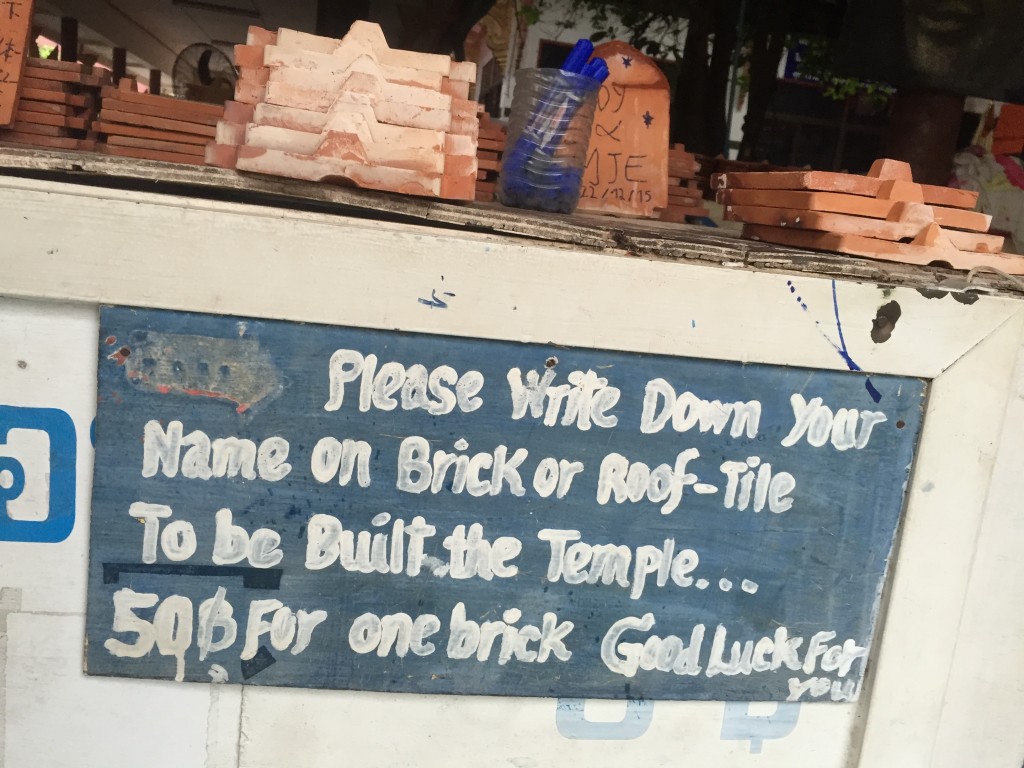 &
MJE
22/12/15
Please Write Down Your
Name on Brick or Roof-Tile
To be Built the Temple...
50฿ For one brick Good Luck For
you